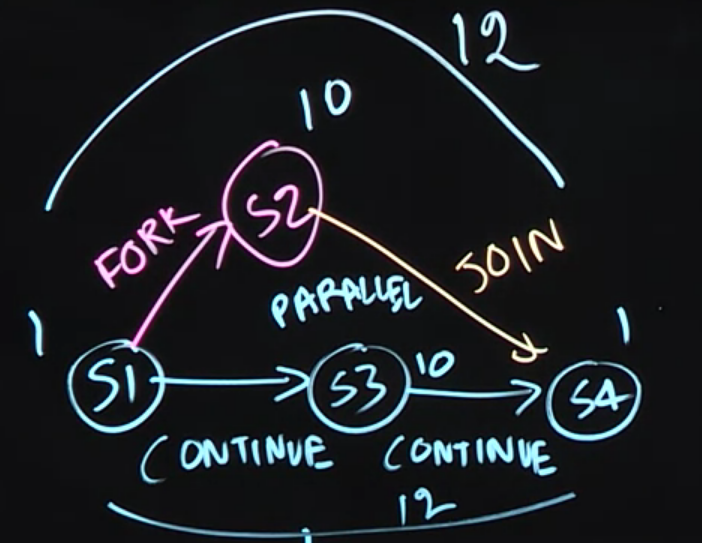 12
10
S2
FORK
JOIN
PARALLEL
1
1
S1
S3
10
S4
CONTINUE
CONTINUE
12